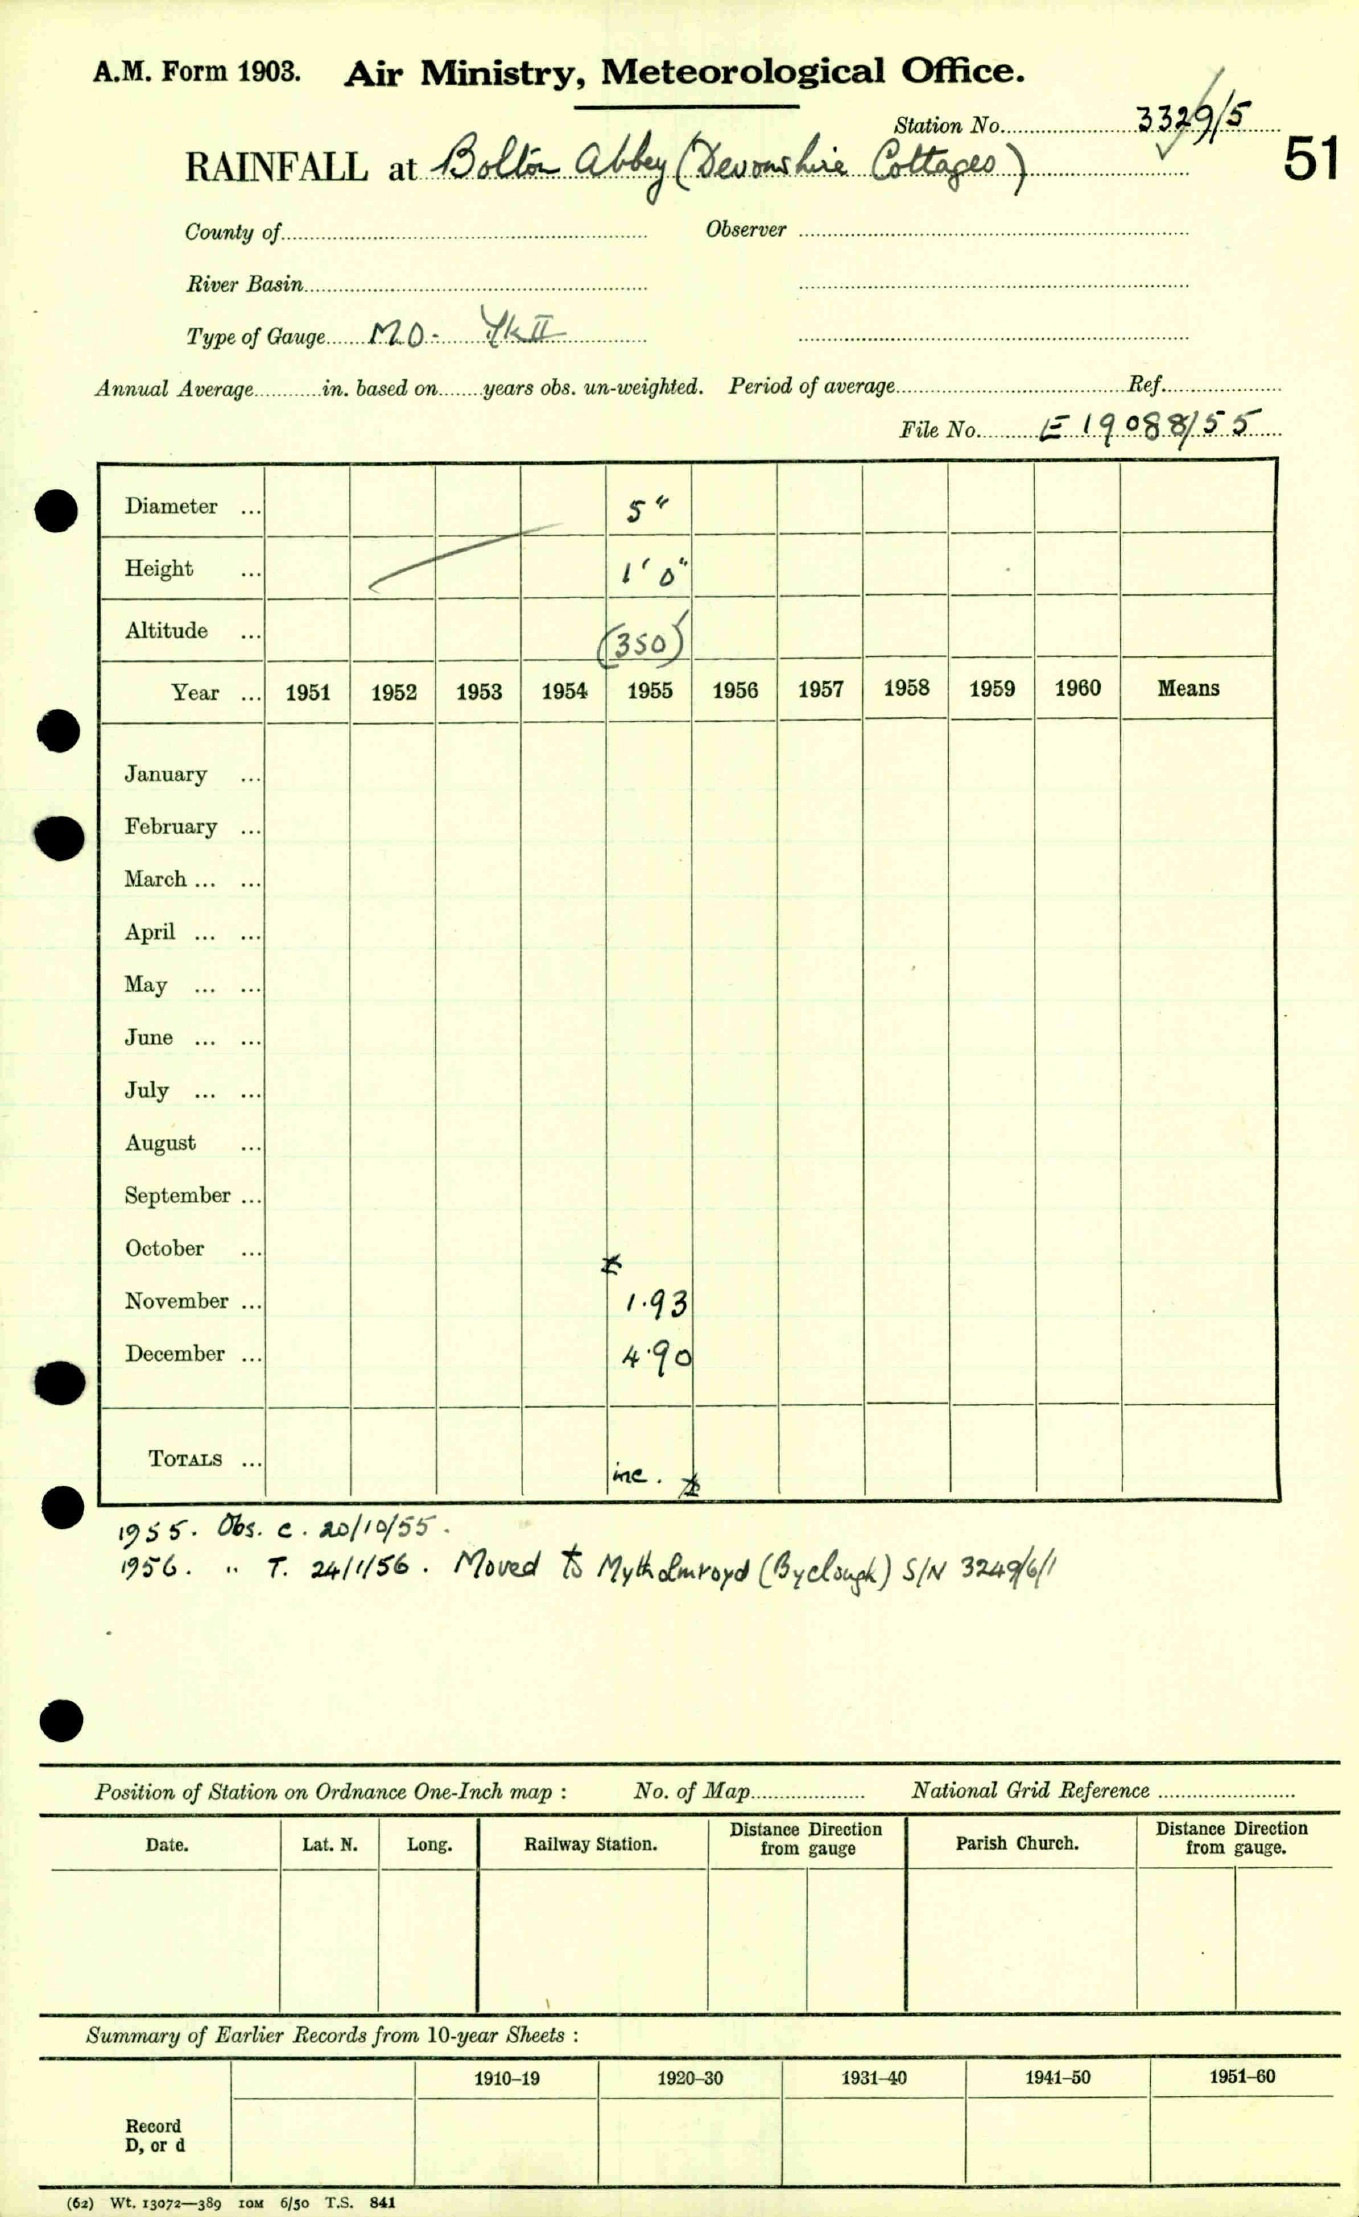 A.M. Form 1903. Air Ministry, Meteorological Office.
Station No. 3329/5
51
RAINFALL at Bolton Abbey (Devonshire Cottages)
County of Observer
River Basin
Type of Gauge M.O. II
Annual Average in. based on years obs. un-weighted. Period of average Ref.
File No. E 19088/55
Diameter ... 5"
Height ... 1' 0"
Altitude ... (350)
Year ... 1951 1952 1953 1954 1955 1956 1957 1958 1959 1960 Means
January ...
February ...
March ... ...
April ... ...
May ... ...
June ... ...
July ... ...
August ...
September ...
October ...
November ... 1.93
December ... 4.90
TOTALS ... inc.
1955. Obs. c. 20/10/55.
1956. " T. 24/1/56. Moved to Mytholmroyd (Byclough) S/N 3249/6/1
Position of Station on Ordnance One-Inch map : No. of Map National Grid Reference
Date. Lat. N. Long. Railway Station. Distance Direction from gauge Parish Church. Distance Direction from gauge.
Summary of Earlier Records from 10-year Sheets :
1910–19 1920–30 1931–40 1941–50 1951–60
Record
D, or d
(62) Wt. 13072—389 10M 6/50 T.S. 841